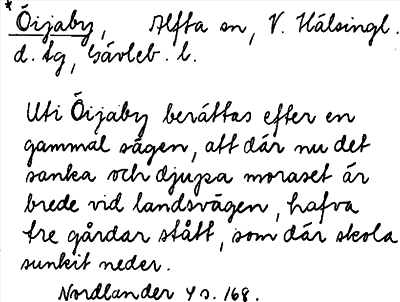 * Öijaby, Alfta sn, V. Hälsingl.
d. tg, Gävleb. l.
Uti Öijäby berättas efter en
gammal sägen, att där nu det
sanka och djupa moraset är
brede vid landsvägen, hafva
tre gårdar stått, som där skola
sunkit neder.
Nordlander 4 s. 168.